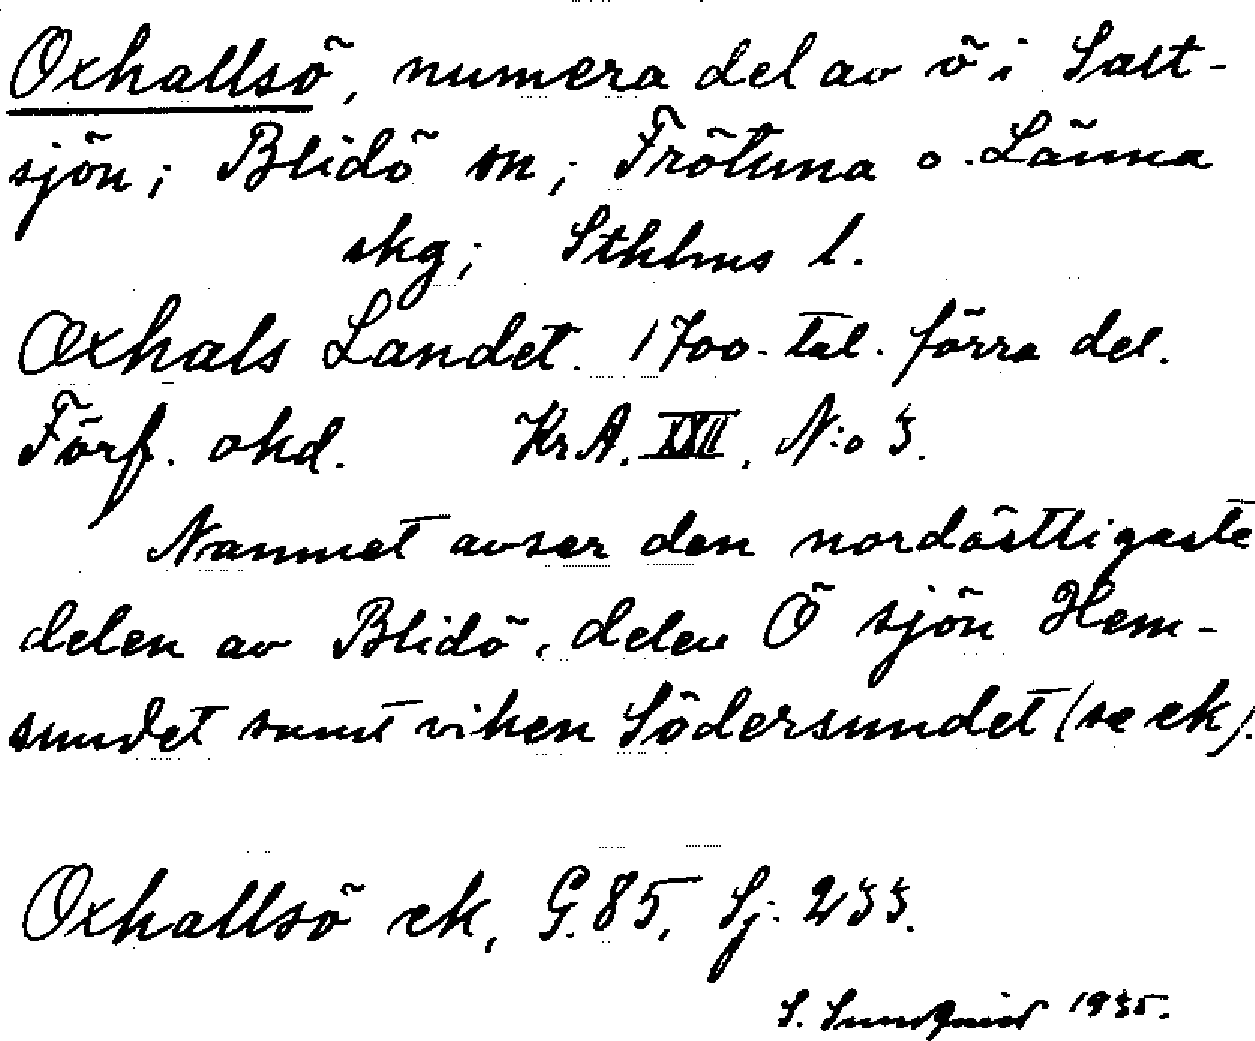 Oxhallsö, numera del av ö i Salt-
sjön; Blidö sn; Frötuna o. Länna
skg; Sthlms l.
Oxhals Landet. 1700-tal. förra del.
Förf. okd. Kr.A. XXII. N:o 3.
Namnet avser den nordöstligaste
delen av Blidö, delen Ö sjön Hem-
sundet samt viken Södersundet (se ek).
Oxhallsö ek, G. 85, Sj: 233.
S. Sundqvist 1935.